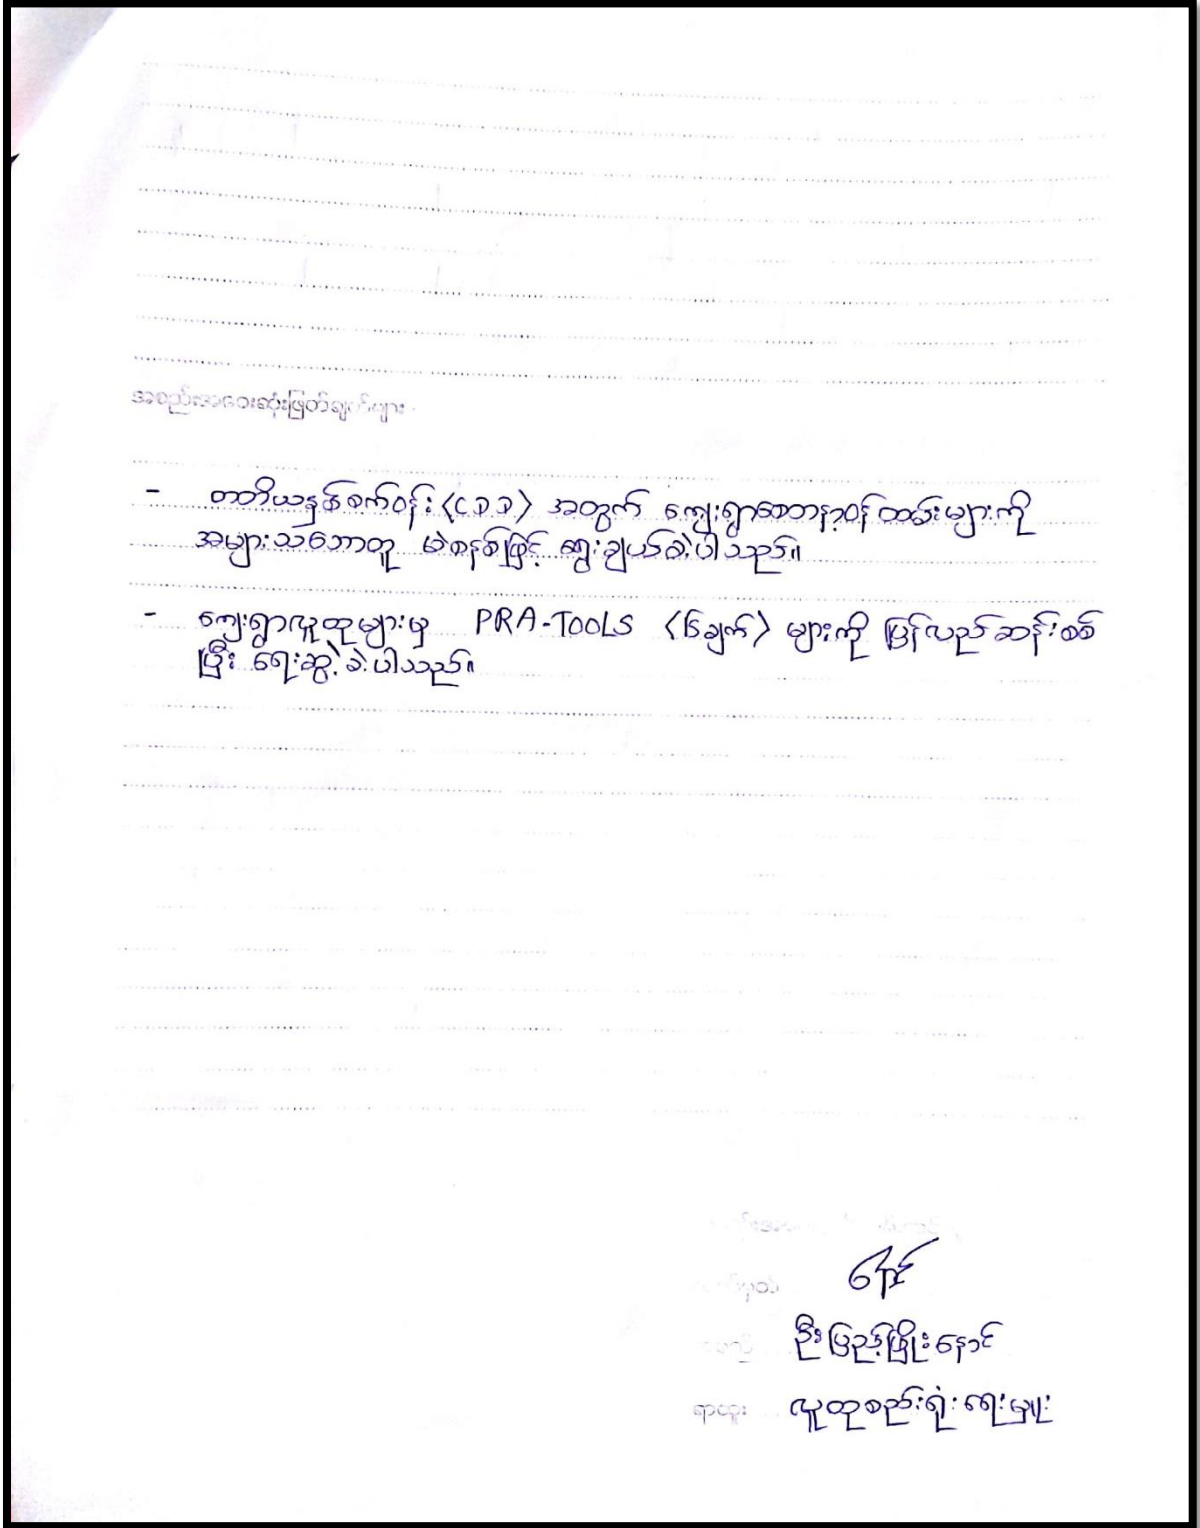 အစည်းအဝေးဆုံးဖြတ်ချက်များ
- တတိယနှစ်စက်ဝန်း (၄၁၁) အတွက် ကျေးရွာစေတနာ့ဝန်ထမ်းများကို
အများသဘောတူ မဲစနစ်ဖြင့် ရွေးချယ်ခဲ့ပါသည်။
- ကျေးရွာလူထုများမှ PRA-TOOLS (၆ချက်) များကို ပြန်လည်ဆန်းစစ်
ပြီး ရေးဆွဲခဲ့ပါသည်။
ဦးပြည့်ဖြိုးနောင်
ရာထူး လူထုစည်းရုံးရေးမှူး